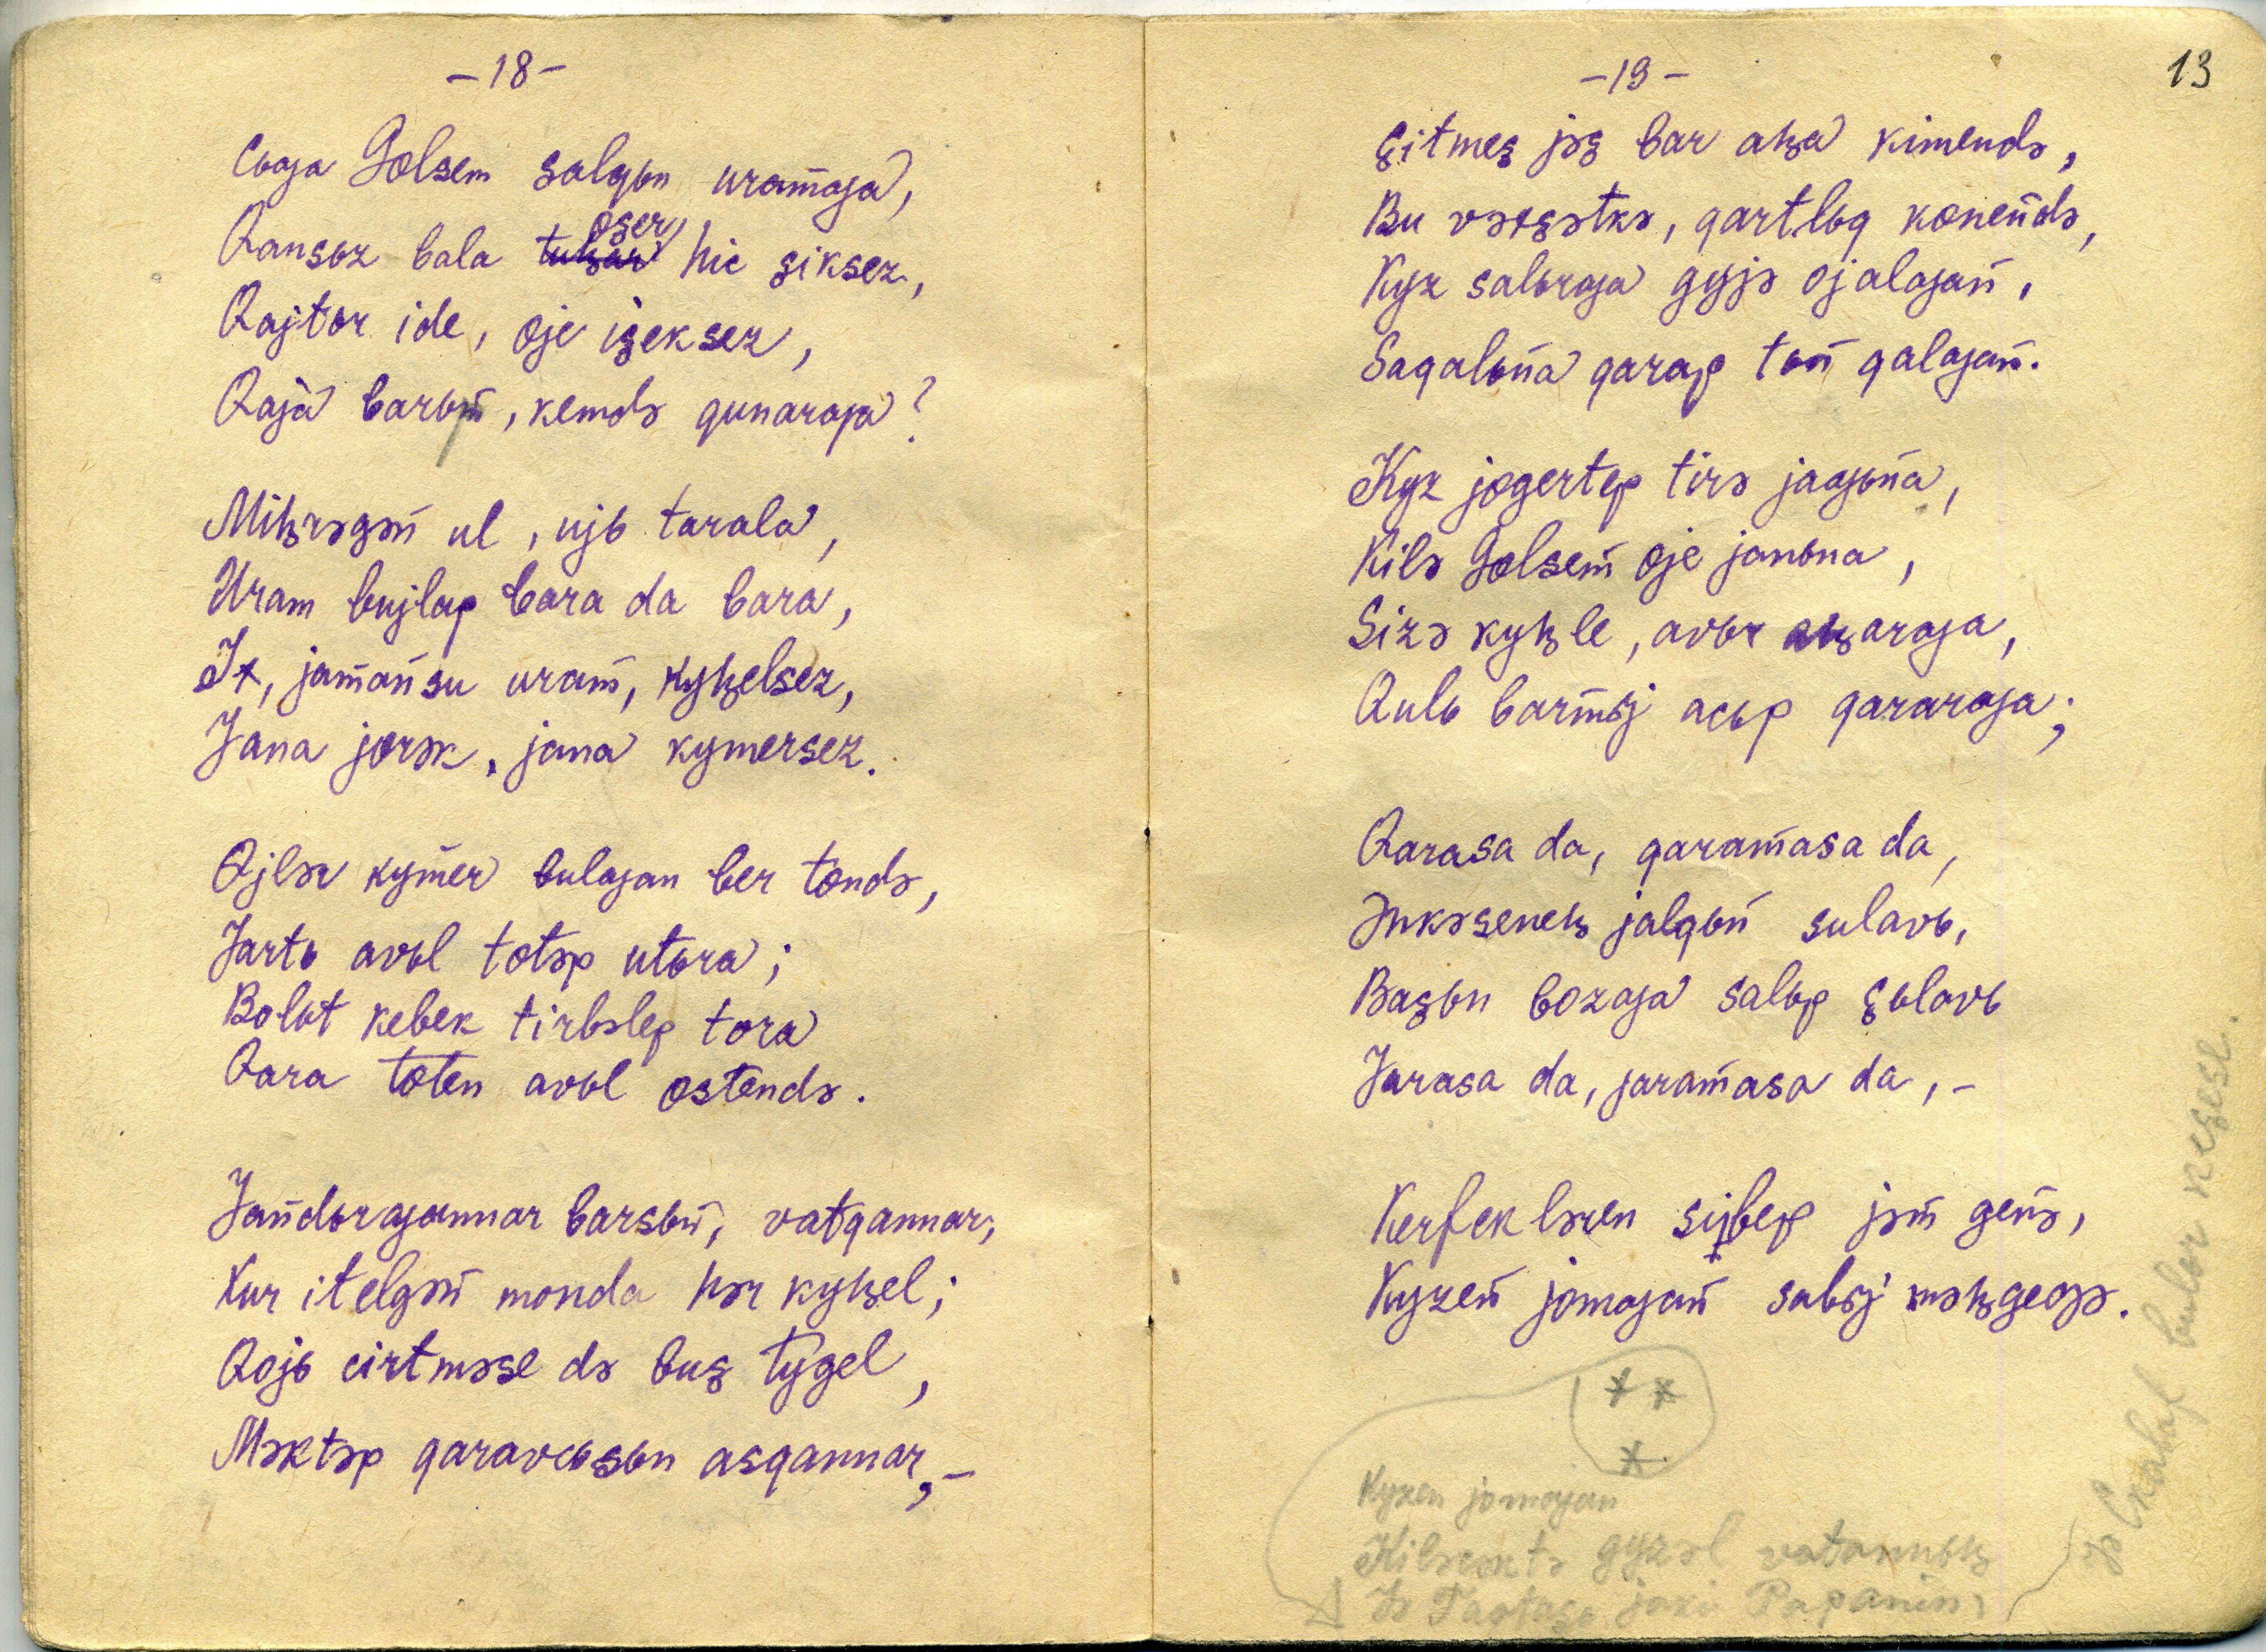 –18–
Cьƣa Gɵlsem salqьn uramƣa,
Qansьz bala ɵşer hic şiksez,
Qajtьr ide, ɵje işeksez,
Qaja barьm, kemdə qunarƣa?
Miꞑrəgən ul, ujь tarala,
Uram bujlap bara da bara,
Ix, jamansu uram, kyꞑelsez,
Jana jɵrək, jana kymersez.
Ɵjlər kymer bulƣan ber tɵndə,
Jartь avьl tɵtəp utьra;
Bolьt kebek tirbəlep tora
Qara tɵten avьl ɵstendə.
Jandьrƣannar barsьn, vatqannar,
Xur itelgən monda hər kyꞑel;
Qojь cirtməse də buş tygel,
Məktəp qaravcьsьn asqannar, –
–19–
13
Çitmeş jəş bar aꞑa kimendə,
Bu vəxşətkə, qartlьq kɵnendə,
Kyz salьrƣa gyjə ojalƣan,
Saqalьna qarap tьn qalƣan.
Kyz jɵgertep tirə jaƣьna,
Kilə Gɵlsem ɵje janьna,
Sizə kyꞑle, avьr aꞑarƣa,
Qulь barmьj acьp qararƣa;
Qarasa da, qaramasa da,
Ənkəseneꞑ jalqьn sulavь,
Başьn bozƣa salьp çьlavь
Jarasa da, jaramasa da, –
Kerfeklәren sibep jəm genə,
Kyzen jomƣan sabьj məꞑgegə.
* *
*
Kyzen jomƣan
gyzəl vatannьꞑ
Papanin
bulьr keşese.